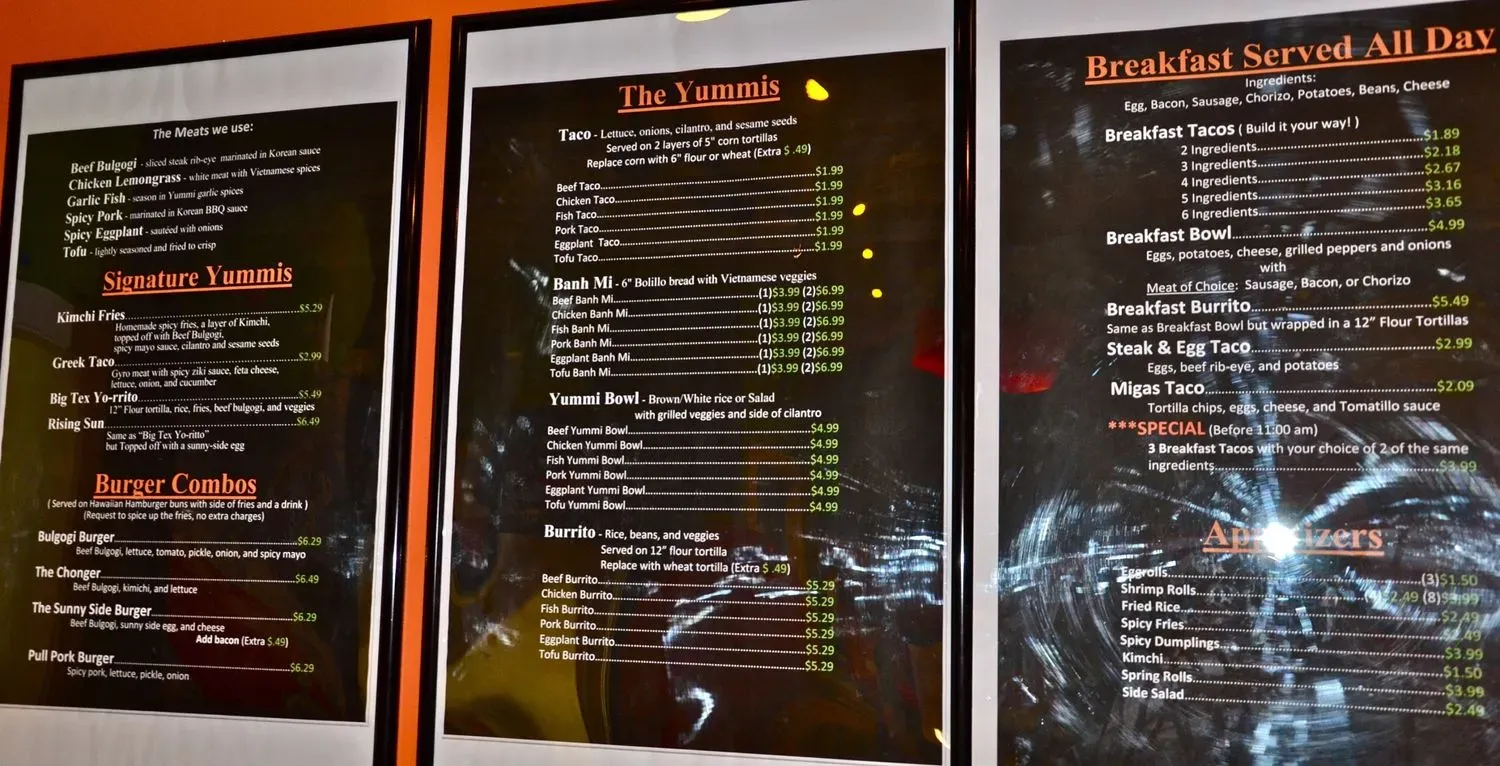 The Meats we use:
Beef Bulgogi - sliced steak rib-eye marinated in Korean sauce
Chicken Lemongrass - white meat with Vietnamese spices
Garlic Fish - season in Yummi garlic spices
Spicy Pork - marinated in Korean BBQ sauce
Spicy Eggplant - sautéed with onions
Tofu - lightly seasoned and fried to crisp
Signature Yummis
Kimchi Fries $5.29
Homemade spicy fries, a layer of Kimchi,
topped off with Beef Bulgogi,
spicy mayo sauce, cilantro and sesame seeds
Greek Taco $2.99
Gyro meat with spicy ziki sauce, feta cheese,
lettuce, onion, and cucumber
Big Tex Yo-rrito $5.49
12" Flour tortilla, rice, fries, beef bulgogi, and veggies
Rising Sun $6.49
Same as "Big Tex Yo-ritto"
but Topped off with a sunny-side egg
Burger Combos
( Served on Hawaiian Hamburger buns with side of fries and a drink )
(Request to spice up the fries, no extra charges)
Bulgogi Burger $6.29
Beef Bulgogi, lettuce, tomato, pickle, onion, and spicy mayo
The Chonger $6.49
Beef Bulgogi, kimichi, and lettuce
The Sunny Side Burger $6.29
Beef Bulgogi, sunny side egg, and cheese
Add bacon (Extra $.49)
Pull Pork Burger $6.29
Spicy pork, lettuce, pickle, onion
The Yummis
Taco - Lettuce, onions, cilantro, and sesame seeds
Served on 2 layers of 5" corn tortillas
Replace corn with 6" flour or wheat (Extra $ .49)
Beef Taco $1.99
Chicken Taco $1.99
Fish Taco $1.99
Pork Taco $1.99
Eggplant Taco $1.99
Tofu Taco $1.99
Banh Mi - 6" Bolillo bread with Vietnamese veggies
Beef Banh Mi (1)$3.99 (2)$6.99
Chicken Banh Mi (1)$3.99 (2)$6.99
Fish Banh Mi (1)$3.99 (2)$6.99
Pork Banh Mi (1)$3.99 (2)$6.99
Eggplant Banh Mi (1)$3.99 (2)$6.99
Tofu Banh Mi (1)$3.99 (2)$6.99
Yummi Bowl - Brown/White rice or Salad
with grilled veggies and side of cilantro
Beef Yummi Bowl $4.99
Chicken Yummi Bowl $4.99
Fish Yummi Bowl $4.99
Pork Yummi Bowl $4.99
Eggplant Yummi Bowl $4.99
Tofu Yummi Bowl $4.99
Burrito - Rice, beans, and veggies
Served on 12" flour tortilla
Replace with wheat tortilla (Extra $ .49)
Beef Burrito $5.29
Chicken Burrito $5.29
Fish Burrito $5.29
Pork Burrito $5.29
Eggplant Burrito $5.29
Tofu Burrito $5.29
Breakfast Served All Day
Ingredients:
Egg, Bacon, Sausage, Chorizo, Potatoes, Beans, Cheese
Breakfast Tacos ( Build it your way! )
2 Ingredients $1.89
3 Ingredients $2.18
4 Ingredients $2.67
5 Ingredients $3.16
6 Ingredients $3.65
Breakfast Bowl $4.99
Eggs, potatoes, cheese, grilled peppers and onions
with
Meat of Choice: Sausage, Bacon, or Chorizo
Breakfast Burrito $5.49
Same as Breakfast Bowl but wrapped in a 12" Flour Tortillas
Steak & Egg Taco $2.99
Eggs, beef rib-eye, and potatoes
Migas Taco $2.09
Tortilla chips, eggs, cheese, and Tomatillo sauce
***SPECIAL (Before 11:00 am)
3 Breakfast Tacos with your choice of 2 of the same
ingredients $3.99
Appetizers
Eggrolls (3)$1.50
Shrimp Rolls $2.49 (8)$3.99
Fried Rice $2.49
Spicy Fries $2.49
Spicy Dumplings $3.99
Kimchi $1.50
Spring Rolls $3.99
Side Salad $2.49